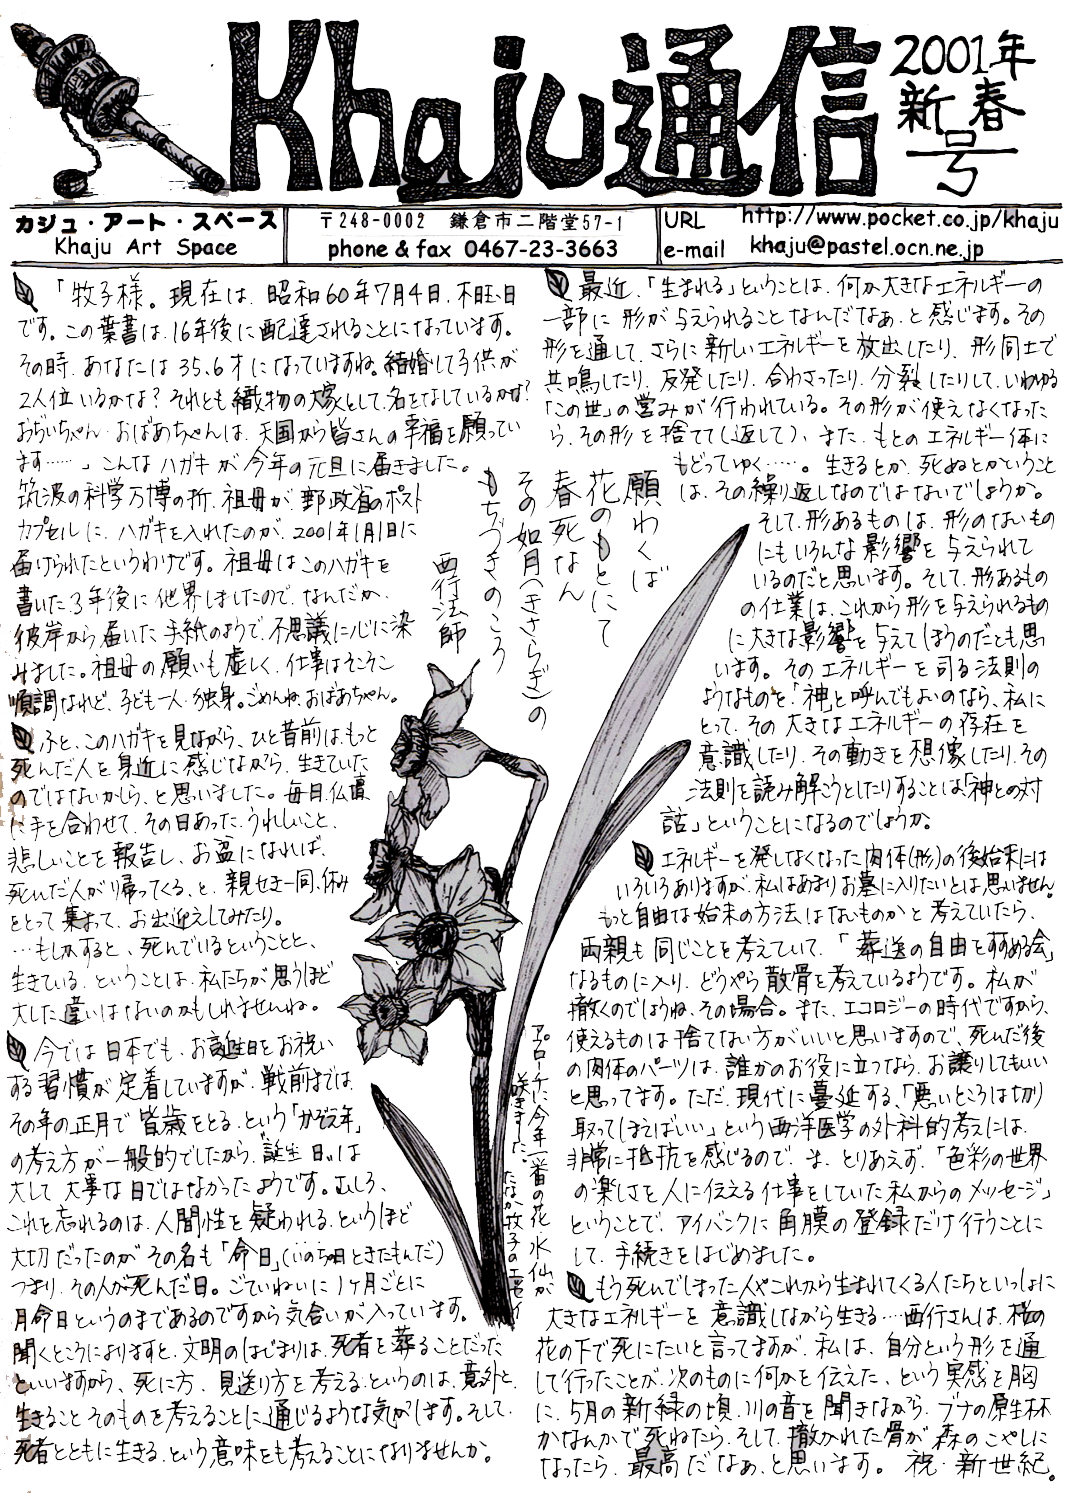 Khaju通信
2001年
新春
号
カジュ・アート・スペース
Khaju Art Space
〒248-0002 鎌倉市二階堂57-1
phone & fax 0467-23-3663
URL http://www.pocket.co.jp/khaju
e-mail khaju@pastel.ocn.ne.jp
「牧子様。現在は、昭和60年7月4日、木曜日
です。この葉書は、16年後に配達されることになっています。
その時、あなたは35、6才になっていますね。結婚して子供が
2人位いるかな？それとも織物の大家として、名をなしているかな？
おぢいちゃん・おばあちゃんは、天国から皆さんの幸福を願ってい
ます……」こんなハガキが今年の元旦に届きました。
筑波の科学万博の折、祖母が、郵政省のポスト
カプセルに、ハガキを入れたのが、2001年1月1日に
届けられたというわけです。祖母はこのハガキを
書いた3年後に他界しましたので、なんだか、
彼岸から届いた手紙のようで、不思議に心に染
みました。祖母の願いも虚しく、仕事はそこそこ
順調なれど、子ども一人・独身。ごめんね、おばあちゃん。
ふと、このハガキを見ながら、ひと昔前は、もっと
死んだ人を身近に感じながら、生きていた
のではないかしら、と思いました。毎日、仏壇
に手を合わせて、その日あった、うれしいこと、
悲しいことを報告し、お盆になれば、
死んだ人が帰ってくる、と、親せき一同、休み
をとって集まって、お出迎えしてみたり。
…もしかすると、死んでいるということと、
生きている、ということは、私たちが思うほど
大した違いはないのかもしれませんね。
今では日本でも、お誕生日をお祝い
する習慣が定着していますが、戦前までは、
その年の正月で皆歳をとる、という「かぞえ年」
の考え方が一般的でしたから、“誕生日”は
大して大事な日ではなかったようです。むしろ、
これを忘れるのは、人間性を疑われる、というほど
大切だったのが、その名も「命日」(いのち日ときたもんだ)
つまり、その人が死んだ日。ごていねいに1ヶ月ごとに
月命日というのまであるのですから気合いが入っています。
聞くところによりますと、文明のはじまりは、死者を葬ることだった
といいますから、死に方、見送り方を考える、というのは、意外と、
生きることそのものを考えることに通じるような気がします。そして、
死者とともに生きる、という意味をも考えることになりませんか。
願わくば
花のもとにて
春死なん
その如月(きさらぎ)の
もちづきのころ
西行法師
アプローチに今年一番の花、水仙が
咲きました。 たなか牧子のエッセイ
最近、「生まれる」ということは、何か大きなエネルギーの
一部に形が与えられることなんだなぁ、と感じます。その
形を通して、さらに新しいエネルギーを放出したり、形同士で
共鳴したり、反発したり、合わさったり、分裂したりして、いわゆる
「この世」の営みが行われている。その形が使えなくなった
ら、その形を捨てて(返して)、また、もとのエネルギー体に
もどってゆく……。生きるとか、死ぬとかいうこと
は、その繰り返しなのではないでしょうか。
そして、形あるものは、形のないもの
にもいろんな影響を与えられて
いるのだと思います。そして、形あるもの
の仕業は、これから形を与えられるもの
に大きな影響を与えてしまうのだとも思
います。そのエネルギーを司る法則の
ようなものを、「神」と呼んでもよいのなら、私に
とって、その大きなエネルギーの存在を
意識したり、その動きを想像したり、その
法則を読み解こうとしたりすることは「神との対
話」ということになるのでしょうか。
エネルギーを発しなくなった肉体(形)の後始末には
いろいろありますが、私はあまりお墓に入りたいとは思いません。
もっと自由な始末の方法はないものかと考えていたら、
両親も同じことを考えていて、「葬送の自由をすすめる会」
なるものに入り、どうやら散骨を考えているようです。私が
撒くのでしょうね、その場合。また、エコロジーの時代ですから、
使えるものは捨てない方がいいと思いますので、死んだ後
の肉体のパーツは、誰かのお役に立つなら、お譲りしてもいい
と思ってます。ただ、現代に蔓延する、「悪いところは切り
取ってしまえばいい」という西洋医学の外科的考えには、
非常に抵抗を感じるので、ま、とりあえず、「色彩の世界
の楽しさを人に伝える仕事をしていた私からのメッセージ」
ということで、アイバンクに角膜の登録だけ行うことに
して、手続きをはじめました。
もう死んでしまった人やこれから生まれてくる人たちといっしょに
大きなエネルギーを意識しながら生きる…西行さんは、桜の
花の下で死にたいと言ってますが、私は、自分という形を通
して行ったことが、次のものに何かを伝えた、という実感を胸
に、5月の新緑の頃、川の音を聞きながら、ブナの原生林
かなんかで死ねたら、そして、撒かれた骨が森のこやしに
なったら、最高だなぁ、と思います。 祝・新世紀。